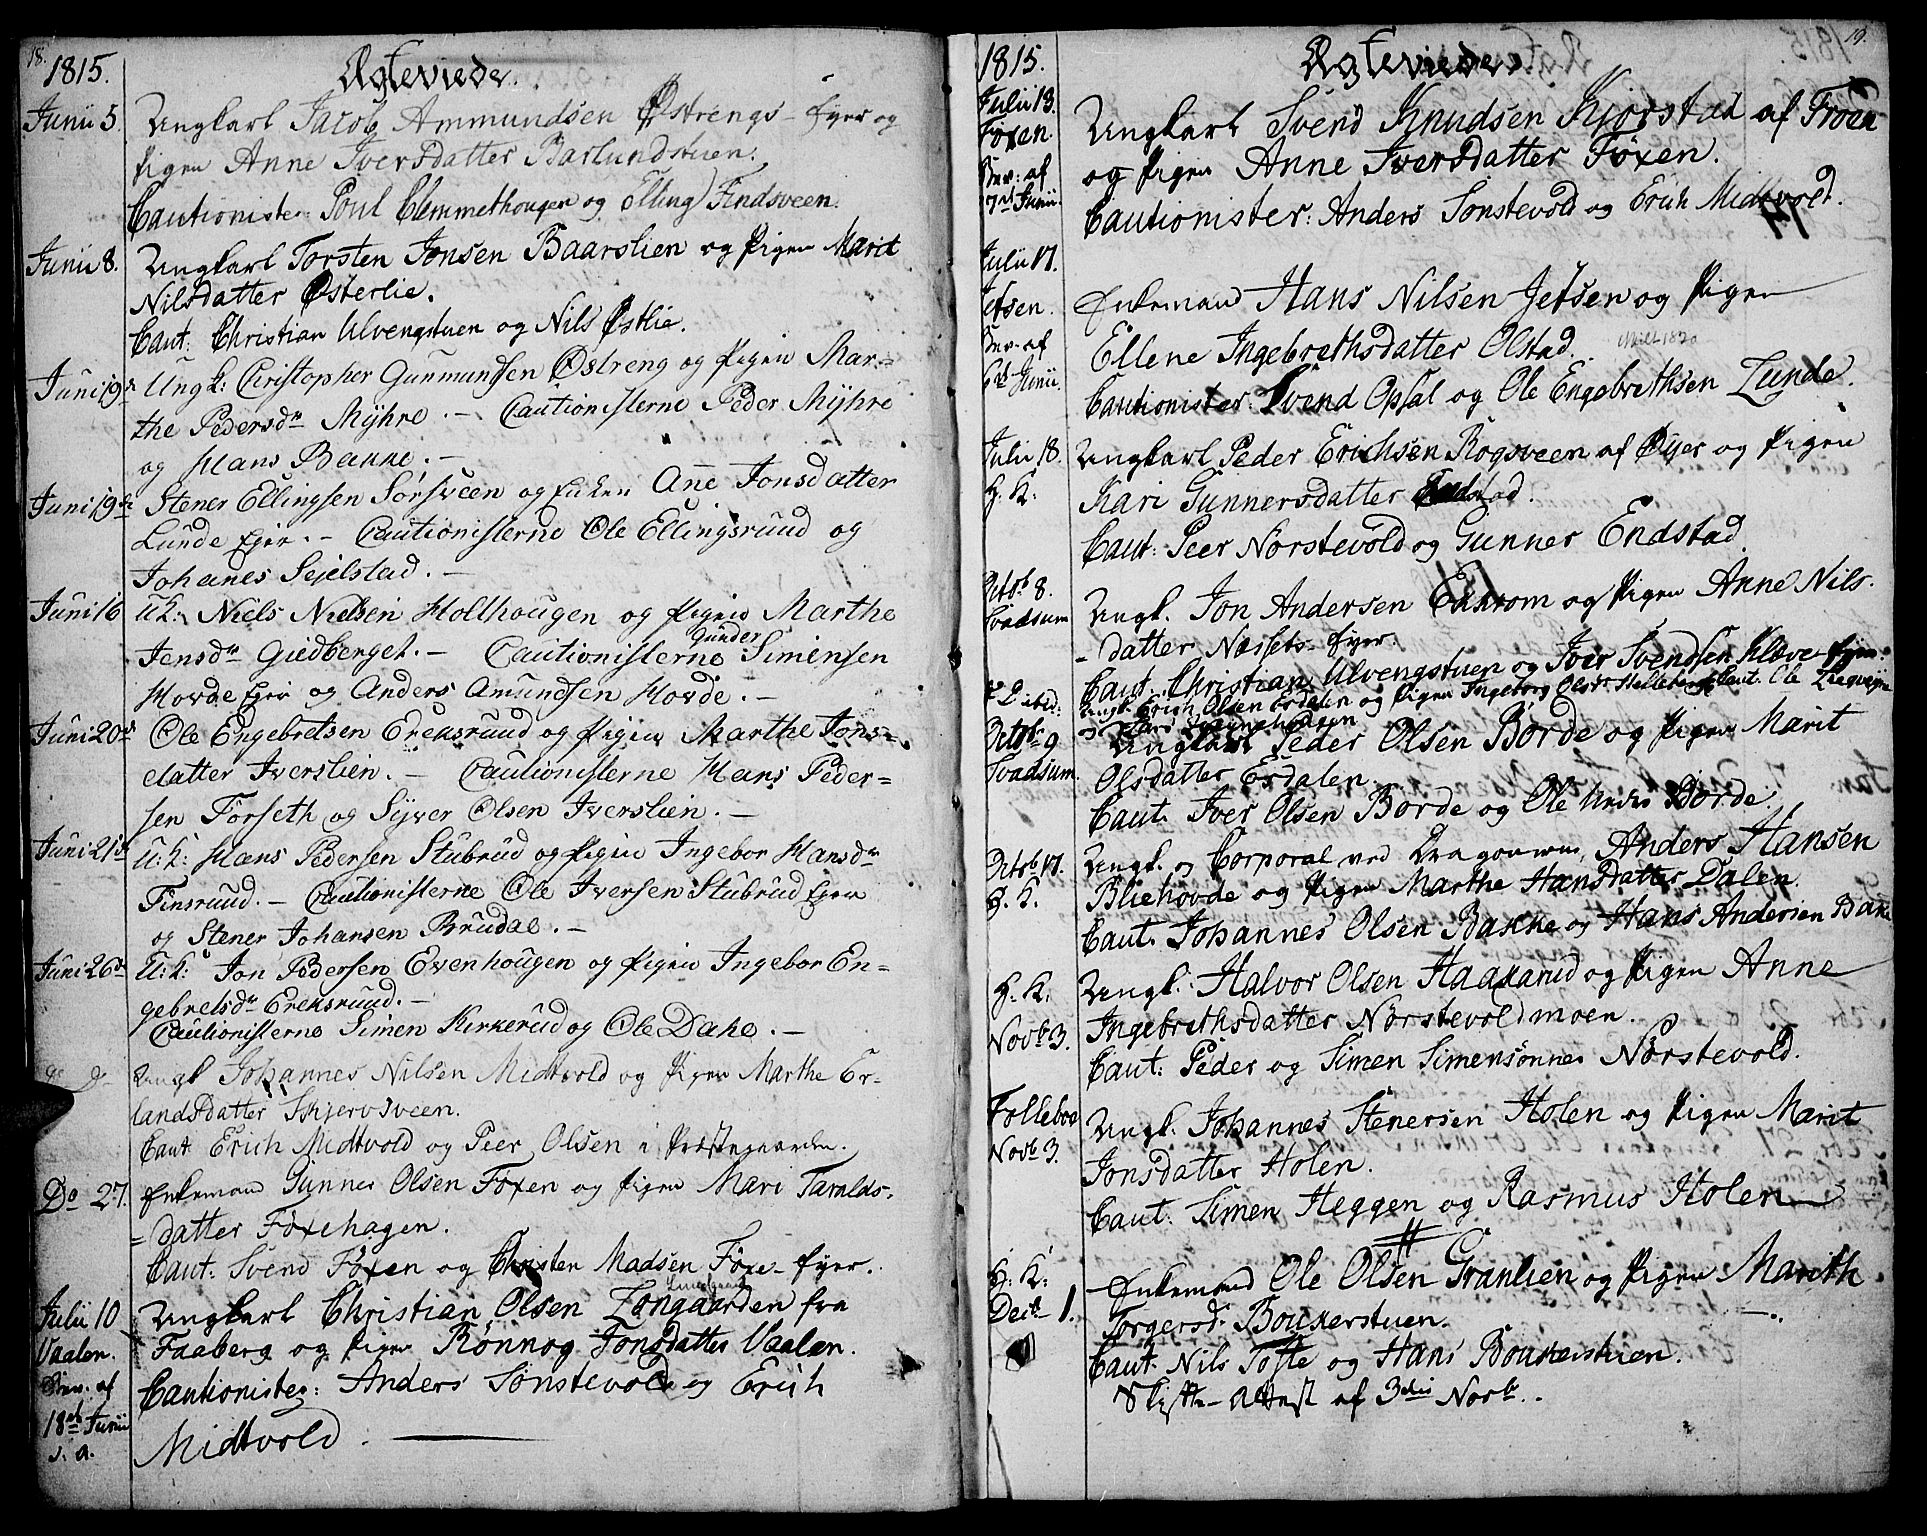 18.
1815.
Ægteviede.
Junii 5.
Ungkarl Jacob Ammundsen Østrengs-Ejer og
Pigen Anne Iversdatter Barlundstuen.
Cautionister Poul Clemmethougen og Elling Findsveen.
Junii 8.
Ungkarl Torsten Jonsen Baarslien og Pigen Marit
Nilsdatter Østerlie.
Caut: Christian Ulvengstuen og Nils Østlie.
Juni 9de
Ungk: Christopher Gunmundsen Østreng og Pigen Mar-
the Pedersdr Mÿhre. — Cautionisterne Peder Mÿhre
og Hans Banke. —
Juni 19de
Stener Ellingsen Sørsveen og Enken Ane Jonsdatter
Lunde Ejer. — Cautionisterne Ole Ellingsruud og
Johanes Sejelstad. —
Juni 16
U:K: Niels Nielsen Hollhougen og Pigen Marthe
Jensdr Gudberget. — Cautionisterne Gunder Simensen
Hovde Ejer og Anders Amundsen Hovde. —
Juni 20de
Ole Engebretsen Ereksruud og Pigen Marthe Jons-
datter Iverslien. — Cautionisterne Hans Peder-
sen Forseth og Syver Olsen Iverslien. —
Juni 21de
U:K: Hans Pedersen Stubrud og Pigen Ingebor Hansdr
Finsruud. — Cautionisterne Ole Iversen Stubrud Ejer
og Stener Johansen Brudal. —
Juni 26de
U:K: Jon Pedersen Evenhougen og Pigen Ingebor En-
gebretsdr Ereksruud. —
Cautionisterne Simen Kirkerud og Ole Dake. —
Ungk Johannes Nilsen Midtvold og Pigen Marthe Er-
landsdatter Skjervsveen.
Caut Erich Midtvold og Peer Olsen i Præstegaarden.
Do 27.
Enkemand Gunner Olsen Foxen og Pigen Mari Taralds-
datter Foxehagen.
Caut: Svend Foxen og Christen Madsen Foxe-Ejer.
Julii 10
Vaalen.
Bev. af
18de Junii
s. a.
Ungkarl Christian Olsen Zongaarden fra
Faaberg og Pigen Rønnog Jonsdatter Vaalen.
Cautionister: Anders Sønstevold og Erich
Midtvold.
19.
1815.
Ægteviede.
Julii 13.
Foxen.
Bev. af
7de Junii
Ungkarl Svend Knudsen Kjorstad af Froen
og Pigen Anne Iversdatter Foxen.
Cautionister: Anders Sønstevold og Erich Midtvold.
Julii 17.
Jetsen.
Bev. af
6te Junii.
Enkemand Hans Nilsen Jetsen og Pigen
Ellene Ingebrethsdatter Olstad.
Cautionister: Svend Opsal og Ole Engebrethsen Lunde.
Julii 18.
H. K.
Ungkarl Peder Erichsen Rogsveen af Øyer og Pigen
Kari Gunnersdatter Endstad.
Caut: Peer Nørstevold og Gunner Endstad.
Octobr 8.
Svadsum
Ungk. Jon Andersen Enkrom og Pigen Anne Nils-
datter Næssets-Ejer.
Caut. Christian Ulvengstuen og Iver Svendsen Klæve-Ejer.
Ungk. Erich Olsen Esdalen og Pigen Ingeborg Olsdr
Octobr 9
Svadsum.
Ungkarl Peder Olsen Børde og Pigen Marit
Olsdatter Esdalen.
Caut. Iver Olsen Børde og Ole Børde.
Octobr 17.
H. K.
Ungk. og Corporal ved Dragonerne, Anders Hansen
Bliehøvde og Pigen Marthe Hansdatter Dalen.
Caut. Johannes Olsen Bakke og Hans Andersen Bake
H. K.
Novbr 3.
Ungk. Halvor Olsen Haakarud og Pigen Anne
Ingebrethsdatter Nørstevoldmoen.
Caut: Peder og Simen Simensønner Nørstevold.
Follebøe
Novbr 3.
Ungk. Johannes Stenersen Holen og Pigen Marit
Jonsdatter Holen.
Caut. Simen Heggen og Rasmus Holen
H: K:
Decbr 1.
Enkemand Ole Olsen Granlien og Pigen Marith
Torgersd: Boukerstuen.
Caut. Nils Tofte og Hans Boukerstuen.
Skifte-Attest af 3die Novbr.